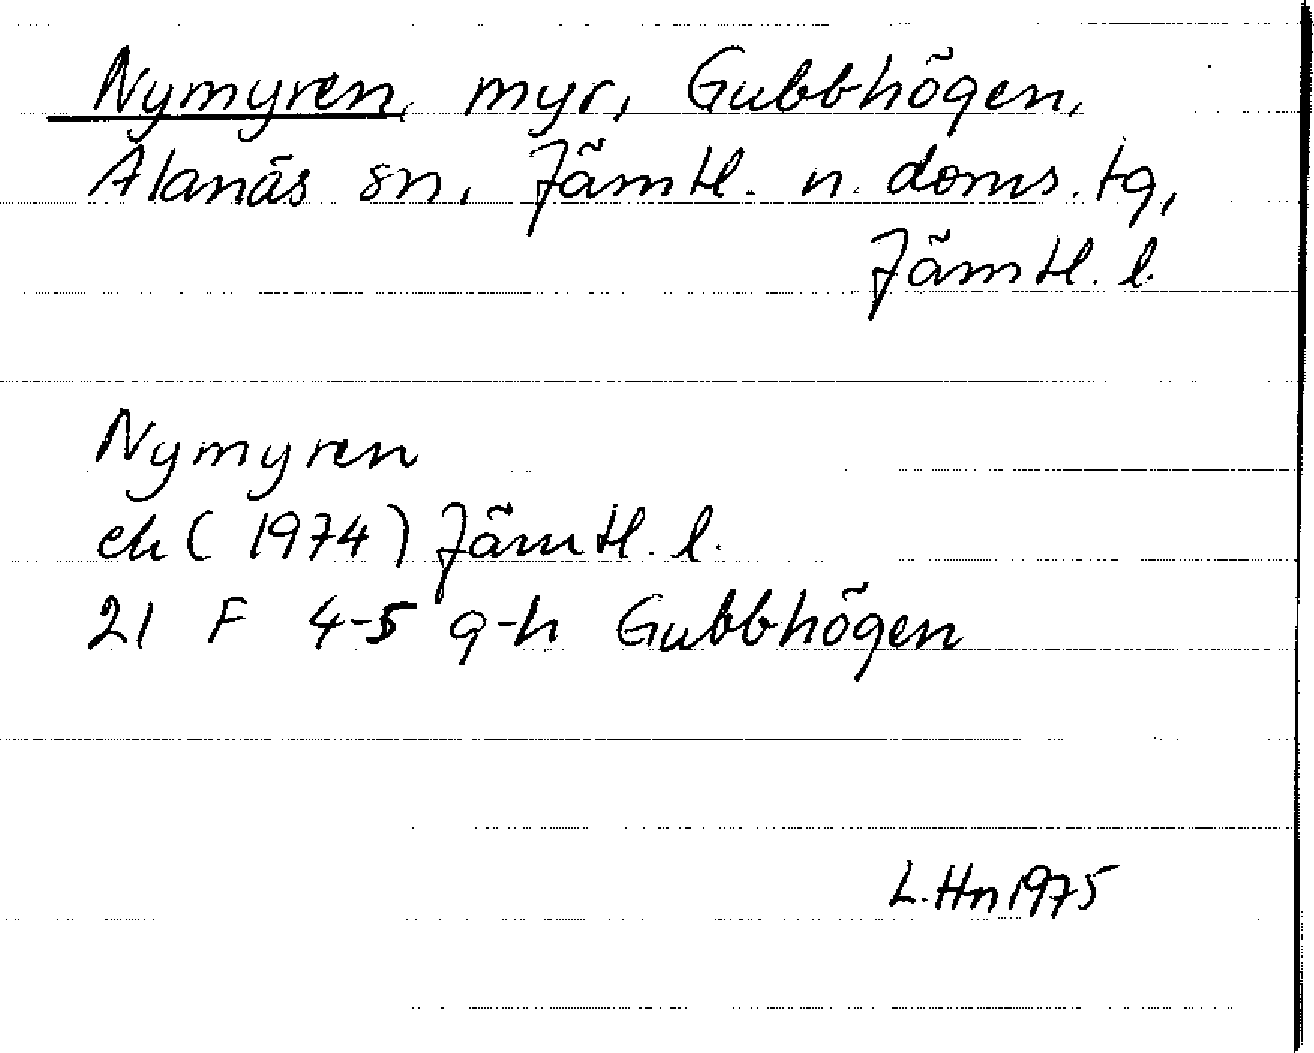 Nymyren, myr, Gubbhögen,
Alanäs sn, Jämtl. n. doms. tg,
Jämtl. l.
Nymyren
ek (1974) Jämtl. l.
21 F 4-5 g-h Gubbhögen
L.Hn 1975